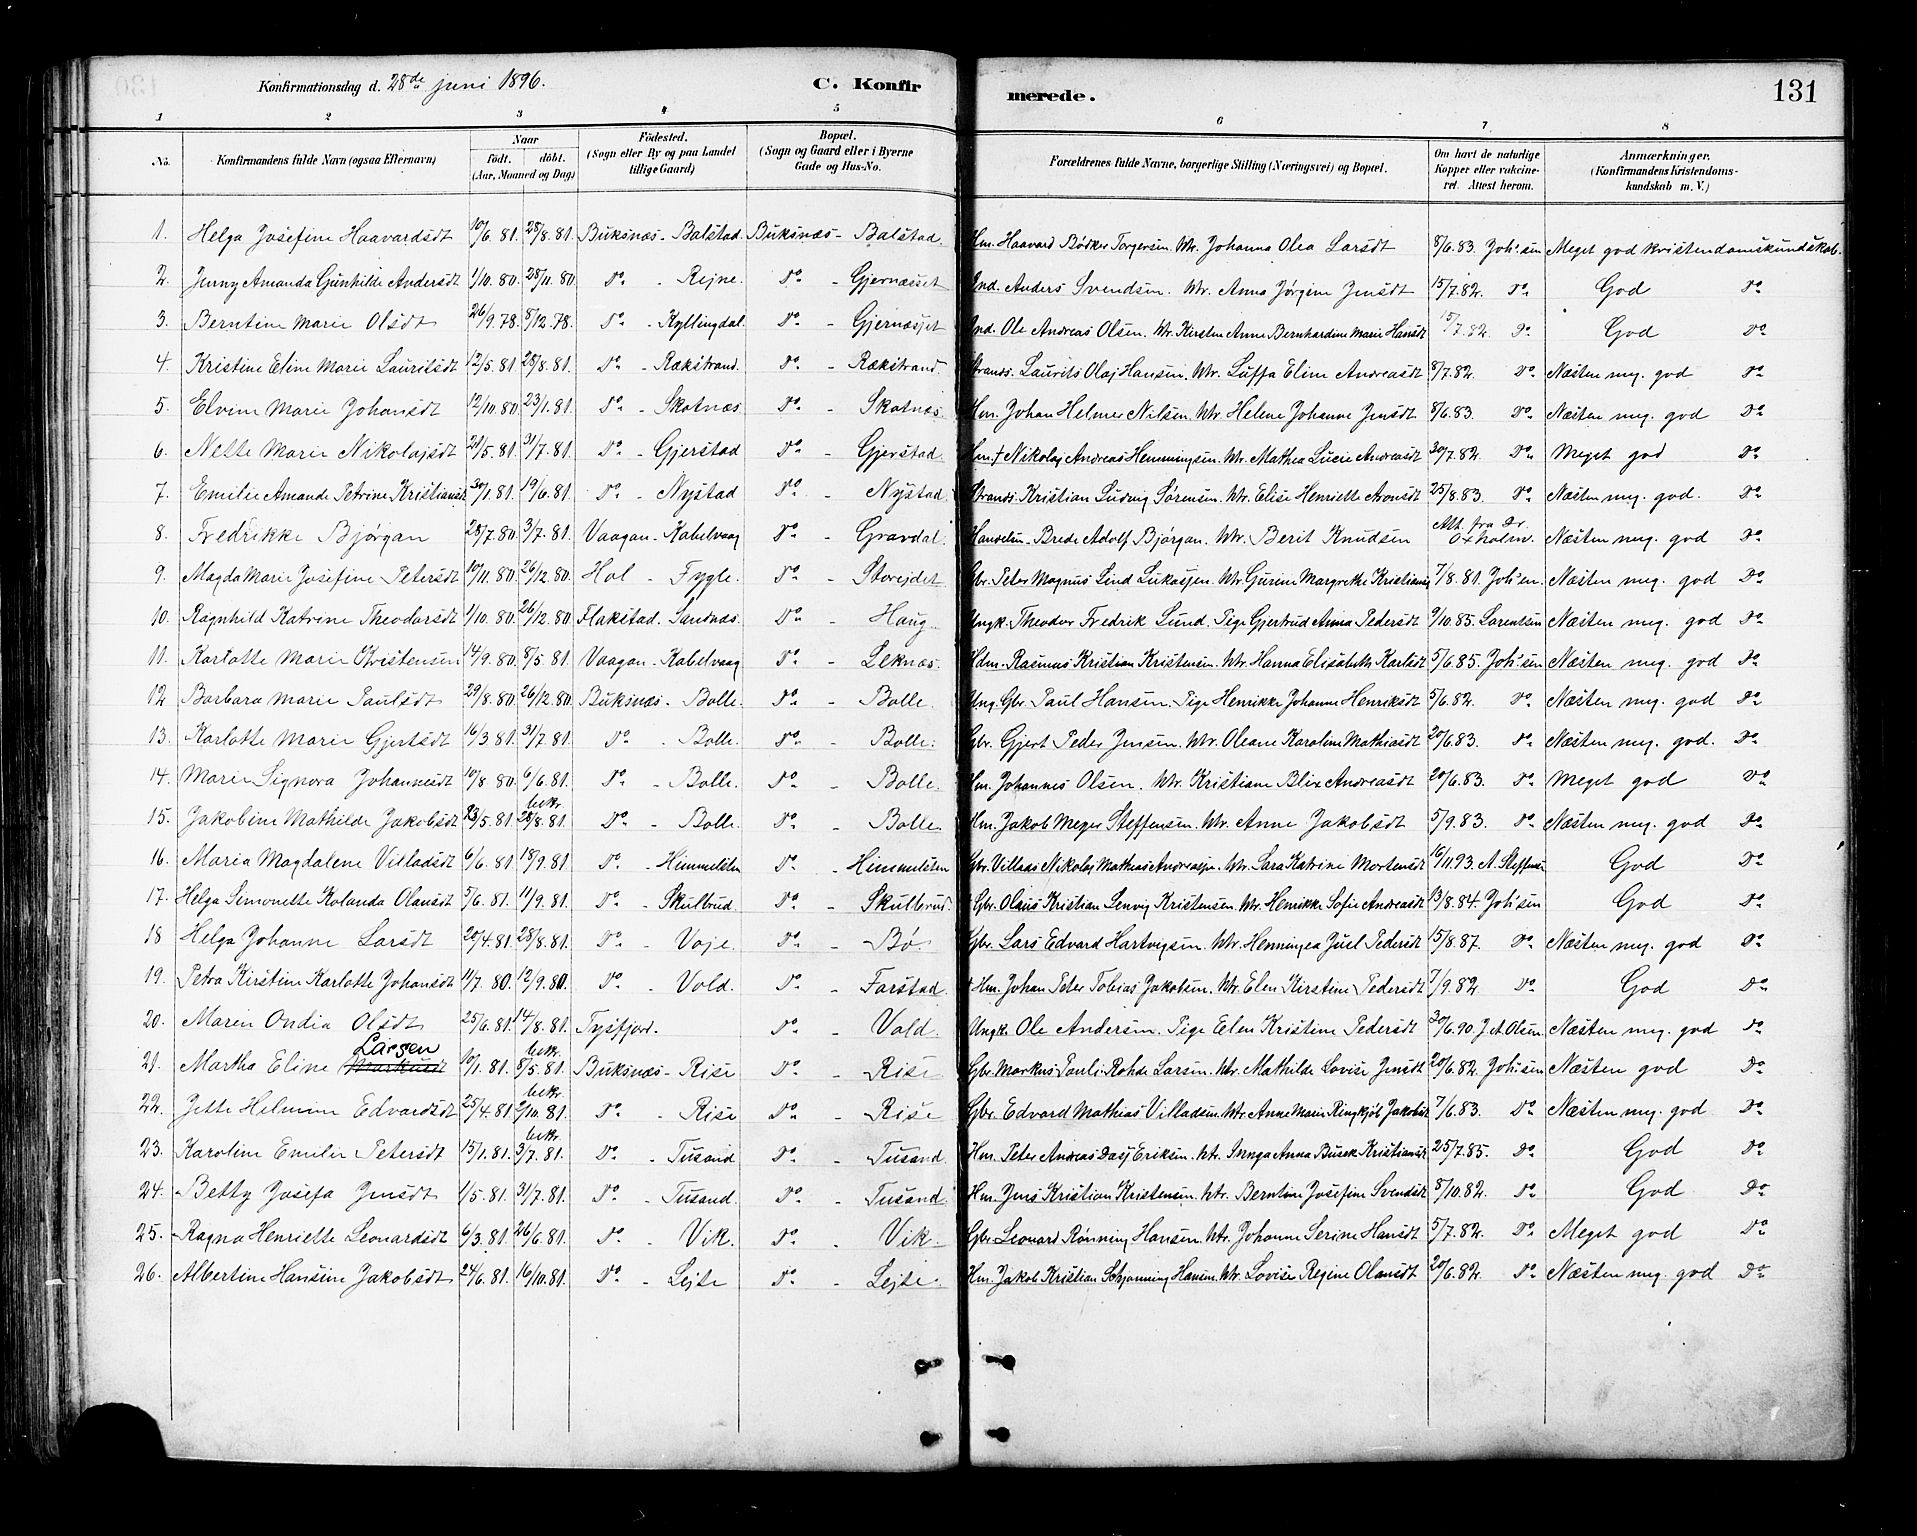 Konfirmationsdag d. 28de juni 1896. C. Konfirmerede. 131
1 2 3 4 5 6 7 8
No. Konfirmandens fulde Navn (ogsaa Efternavn) Naar født. døbt. (Aar, Maaned og Dag) Födested. (Sogn eller By og paa Landet tillige Gaard) Bopæl. (Sogn og Gaard eller i Byerne Gade og Hus-No. Forældrenes fulde Navne, borgerlige Stilling (Næringsvei) og Bopæl. Om havt de naturlige Kopper eller vakcineret. Attest herom. Anmærkninger. (Konfirmandens Kristendomskundskab m. V.)
1. Helga Josefine Haavardsdt 10/6.81. 28/8.81. Buksnæs - Balstad. Buksnæs - Balstad. Hm. Haavard Bödker Torgersen. Htr. Johanna Olea Larsdt 8/6.83 Joh's'sen Meget god kristendomskundskab.
2. Jenny Amanda Gunhilde Andersdt 1/10.80. 28/11.80. Do - Rejne. Do - Gjernæsset Ind. Anders Svendsen. Htr. Anna Jørgine Jensdt 15/7.82. Do God Do
3. Berntine Marie Olsdt 26/9.78. 8/12.78. Do - Kyllingdal. Do - Gjernæsset Ind. Ole Andreas Olsen. Htr. Kirsten Anne Bernhardine Marie Hansdt 15/7.82. Do God Do
4. Kristine Eline Marie Lauritsdt 12/5.81. 28/8.81. Do - Rækstrand. Do - Rækstrand. Strands. Laurits Olaj Hansen. Htr. Luffa Eline Andreasdt 8/7.82. Do Næsten meg. god Do
5. Elvine Marie Johansdt 12/10.80. 23/1.81. Do - Skotnæs. Do - Skotnæs. Hm. Johan Helmer Nilsen. Htr. Helene Johanne Jensdt 8/6.83. Do Næsten meg. god Do
6. Nette Marie Nikolajsdt 21/5.81. 31/7.81. Do - Gjerstad Do - Gjerstad. Hm. † Nikolaj Andreas Hemmingsen. Htr. Mathea Lucie Andreasdt 30/7.82. Do Meget god Do
7. Emilie Amanda Petrine Kristiansdt 30/1.81. 19/6.81. Do - Nystad Do - Nystad. Strands. Kristian Ludvig Sørensen. Htr. Elise Henriette Aronsdt 25/8.83. Do Næsten meg. god. Do
8. Fredrikke Bjørgan 28/7.80. 3/7.81. Vaagan - Kabelvaag Do - Gravdal. Handelsm. Brede Adolf Bjørgan. Htr. Berit Knudsen Att. fra Dr. Oxholm. Næsten meg. god Do
9. Magda Marie Josefine Petersdt 10/11.80. 26/12.80. Hol - Fygle. Do - Storejdet Gbr. Peter Magnus Lind Lukassen. Htr. Gurine Margrethe Kristiansdt 7/8.81. Joh's'en. Næsten meg. god Do
10. Ragnhild Katrine Theodorsdt 1/10.80. 26/12.80. Flakstad. Sandnæs. Do - Haug Ungk. Theodor Fredrik Lund. Pige Gjertrud Anna Pedersdt 9/10.85. Lorentsen Næsten meg. god Do
11. Karlotte Marie Kristensen 14/9.80. 8/5.81. Vaagan - Kabelvaag Do - Leknæs. Hdm. Rasmus Kristian Kristensen. Htr. Hanna Elisabeth Karlsdt 5/6.85. Joh's'sen Næsten meg. god Do
12. Barbara Marie Paulsdt 29/8.80. 26/12.80. Buksnæs - Bolle. Do - Bolle. Ung. Gbr. Paul Hansen. Pige Henrikke Johanne Henriksdt 5/6.82. Do Næsten meg. god Do
13. Karlotte Marie Gjertsdt 16/3.81. 31/7.81. Do - Bolle. Do - Bolle. Gbr. Gjert Peder Jensen. Htr. Oleane Karoline Mathiasdt 20/6.83. Do Næsten meg. god. Do
14. Marie Signora Johannesdt 10/8 80. 6/6.81. Do - Bolle. Do - Bolle. Hm. Johannes Olsen. Htr. Kristiane Blix Andreasdt 20/6.83. Do Meget god Do
15. Jakobine Mathilde Jakobsdt 23/5.81. bekr. 28/8.81 Do - Bolle Do - Bolle Hm. Jakob Meyer Steffensen. Htr. Anne Jakobsdt 5/9.83. Do Næsten meg. god Do
16. Maria Magdalene Villadsdt 6/6.81. 18/9.81. Do - Himmelsten Do - Himmelsten Gbr. Villads Nikolaj Mathias Andreassen. Htr. Sara Katrine Mortensdt 16/11.93. A. Steffensen God Do
17. Helga Simonette Kolanda Olausdt 5/6.81. 11/9.81. Do - Skulbrud. Do - Skulbrud. Gbr. Olaus Kristian Lenvig Kristensen. Htr. Henrikke Sofie Andreasdt 13/8.84. Joh's'sen God Do
18 Helga Johanne Larsdt 20/4.81. 28/8.81. Do - Voje. Do - Bø. Gbr. Lars Edvard Hartvigsen. Htr. Henningea Juel Pedersdt 15/8.87. Do Næsten meg. god Do
19. Petra Kirstine Karlotte Johansdt 11/7.80. 12/9.80. Do - Vold. Do - Farstad. † Hm. Johan Peter Tobias Jakobsen. Htr. Elen Kirstine Pedersdt 7/9.82. Do God Do
20. Maren Ondia Olsdt 25/6.81. 14/8.81. Tysfjord. Do - Vold. Ungk. Ole Andersen. Pige Elen Kristine Pedersdt 30/6.90. J. A. Olsen. Næsten meg. god Do
21. Martha Eline Markusdt Larsen 10/1.81. bekr. 8/5.81. Buksnæs - Rise Do - Rise Gbr. Markus Pauli Rohde Larsen. Htr. Mathilde Lovise Jensdt 20/6.82. Joh's'sen Næsten god Do
22. Jette Helmine Edvardsdt 25/4.81. bekr. 2/10.81. Do - Rise Do - Rise Gbr. Edvard Mathias Villadsen. Htr. Anne Marie Ringkjøb Jakobsdt 7/6.83. Do Næsten meg. god Do
23. Karoline Emilie Petersdt 15/1.81. bekr. 3/7.81. Do - Tusand Do - Tusand. Hm. Peter Andreas Dasj Eriksen. Htr. Innga Anna Busck Kristiansdt 25/7.85. Do God Do
24. Betty Josefa Jensdt 1/5.81. 31/7.81. Do - Tusand. Do - Tusand. Hm. Jens Kristian Kristensen. Htr. Berntine Josefine Svendsdt 8/10.82. Do God Do
25. Ragna Henriette Leonardsdt 6/3.81. 26/6.81. Do - Vik. Do - Vik. Gbr. Leonard Rønning Hansen. Htr. Johanne Serine Hansdt 5/7.82. Do Meget god Do
26. Albertine Hansine Jakobsdt 24/6.81. 16/10.81. Do - Lejte Do - Lejte. Hm. Jakob Kristian Schjønning Hansen. Htr. Lovise Regine Olausdt 20/6.82. Do Næsten meg. god Do